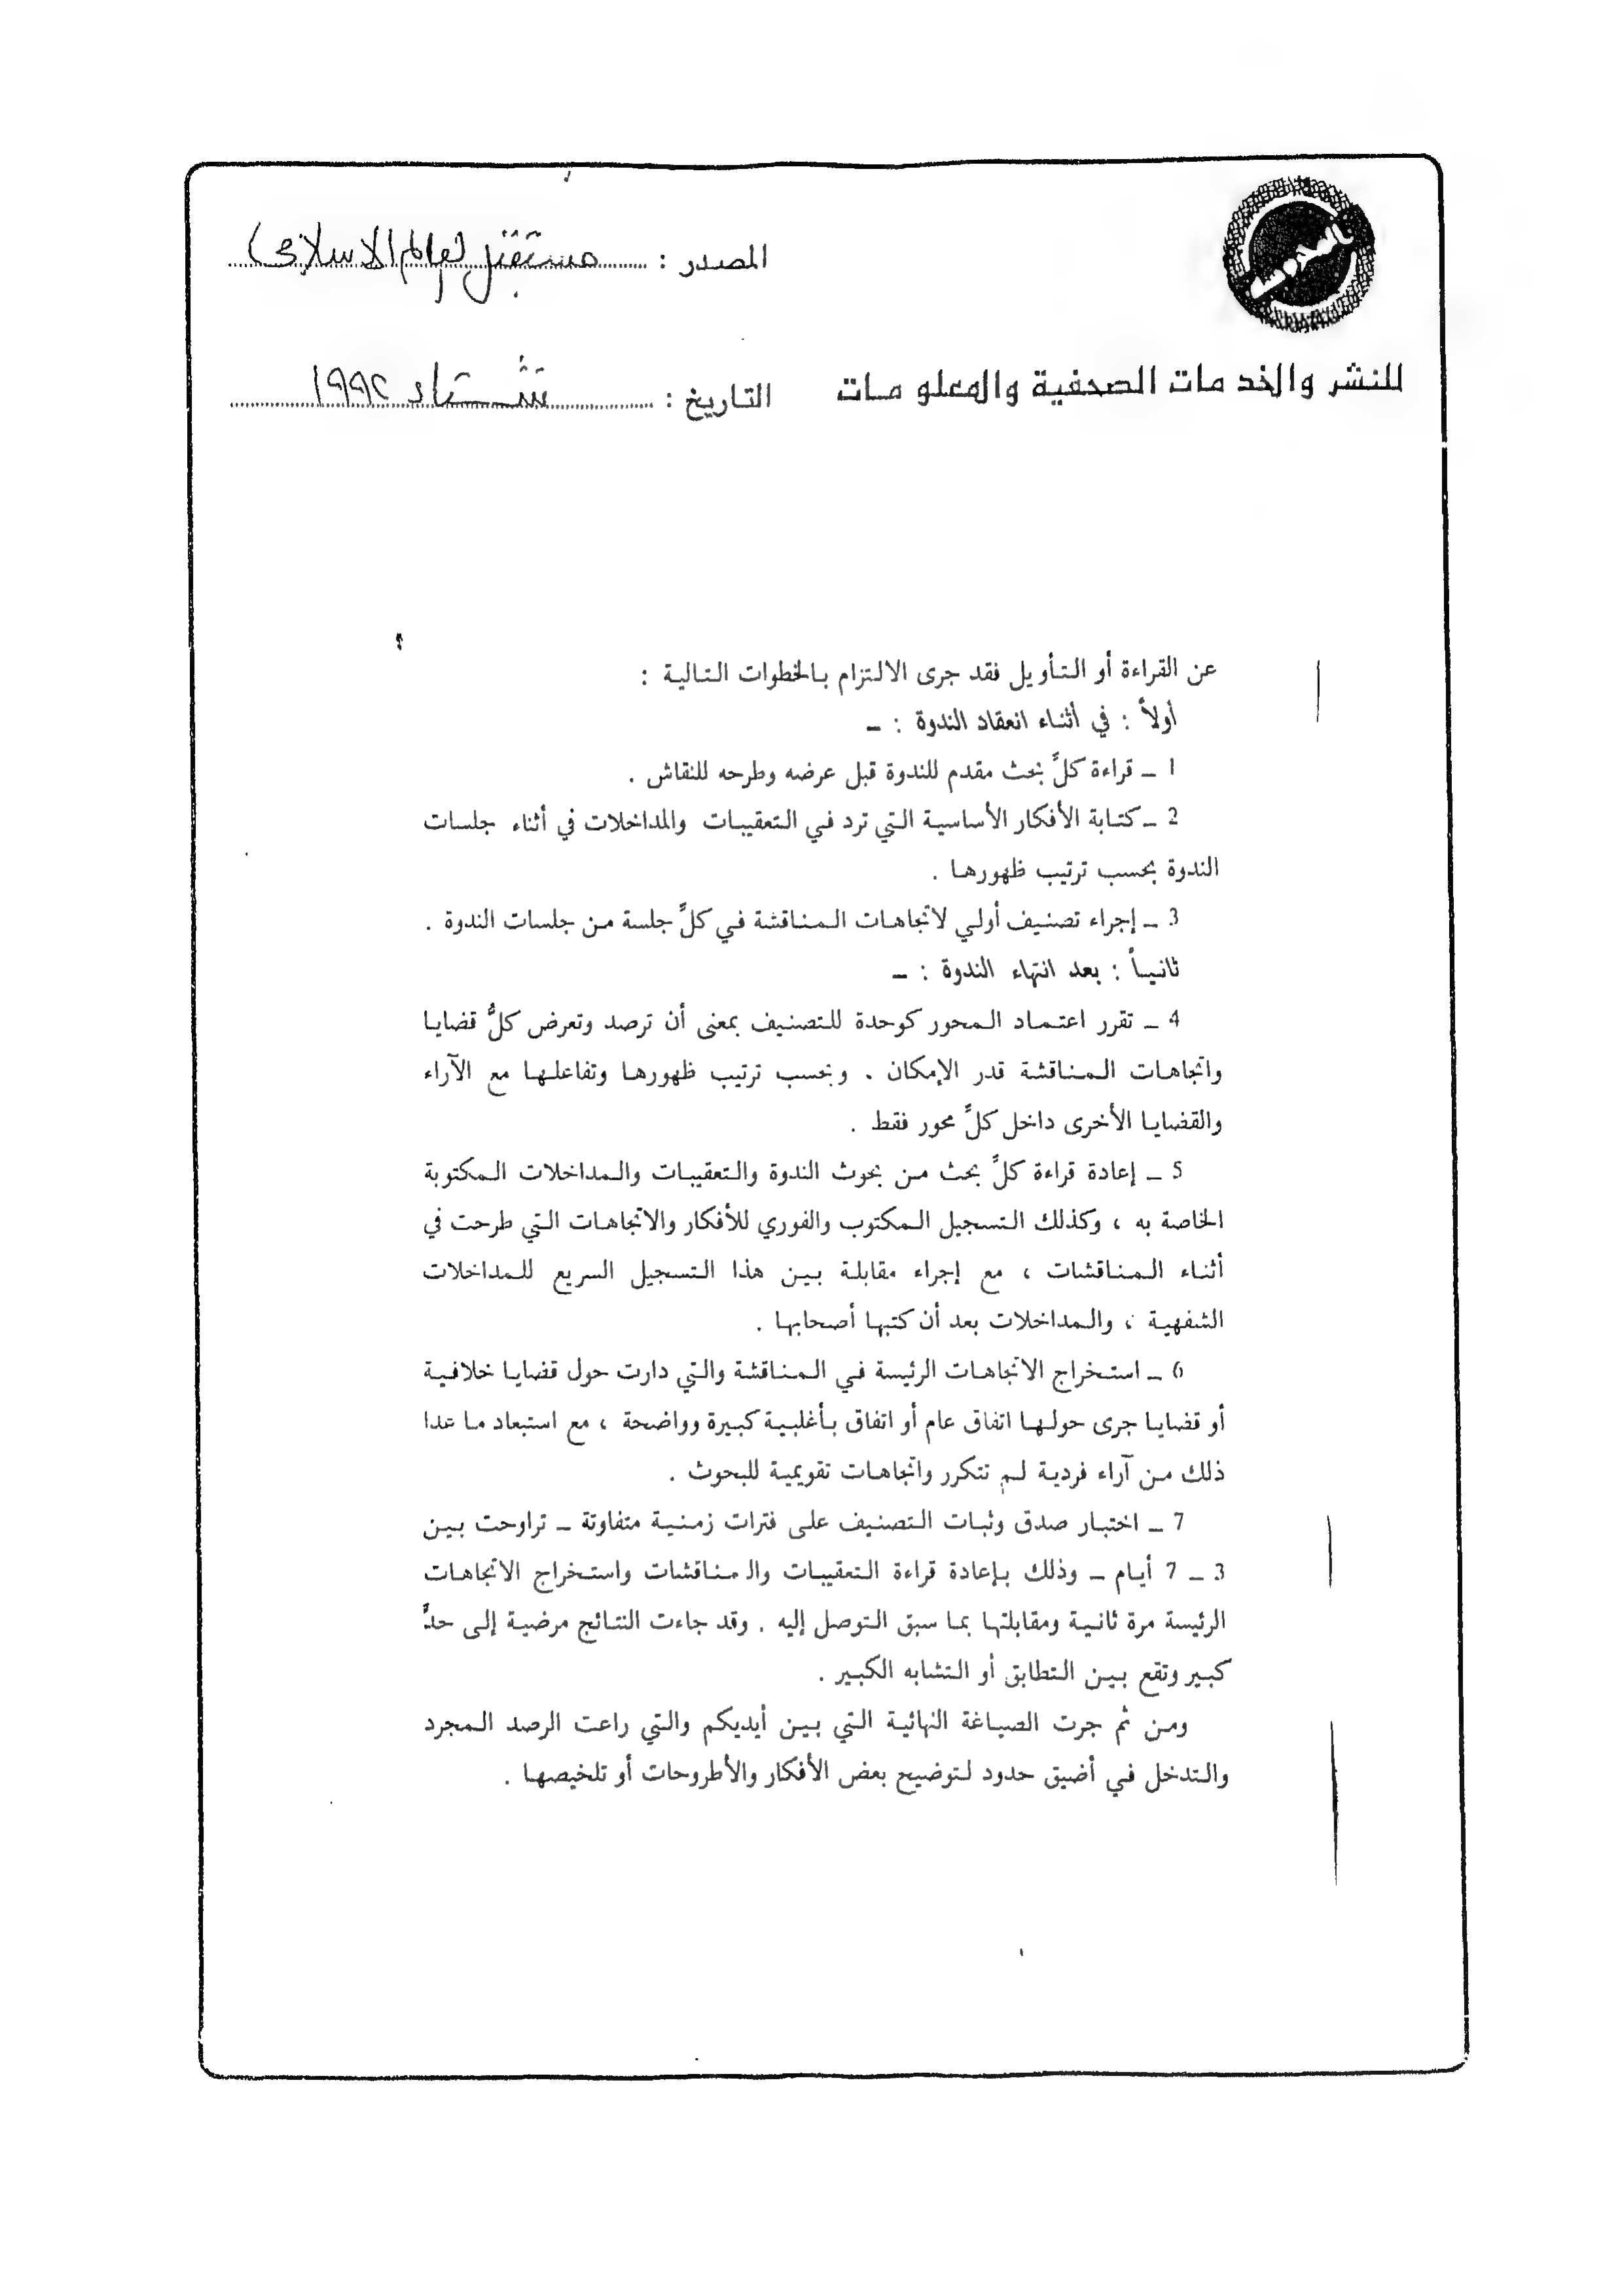 المصدر : مستقبل العالم الاسلامى
للنشر والخدمات الصحفية والمعلومات
التاريخ : شتاء ١٩٩٢
عن القراءة أو التأويل فقد جرى الالتزام بالخطوات التالية :
أولاً : في أثناء انعقاد الندوة : –
1 – قراءة كلّ بحث مقدم للندوة قبل عرضه وطرحه للنقاش .
2 – كتابة الأفكار الأساسية التي ترد في التعقيبات والمداخلات في أثناء جلسات
الندوة بحسب ترتيب ظهورها .
3 – إجراء تصنيف أولي لاتجاهات المناقشة في كلّ جلسة من جلسات الندوة .
ثانياً : بعد انتهاء الندوة : –
4 – تقرر اعتماد المحور كوحدة للتصنيف بمعنى أن ترصد وتعرض كلُّ قضايا
واتجاهات المناقشة قدر الإمكان . وبحسب ترتيب ظهورها وتفاعلها مع الآراء
والقضايا الأخرى داخل كلّ محور فقط .
5 – إعادة قراءة كلّ بحث من بحوث الندوة والتعقيبات والمداخلات المكتوبة
الخاصة به ، وكذلك التسجيل المكتوب والفوري للأفكار والاتجاهات التي طرحت في
أثناء المناقشات ، مع إجراء مقابلة بين هذا التسجيل السريع للمداخلات
الشفهية ، والمداخلات بعد أن كتبها أصحابها .
6 – استخراج الاتجاهات الرئيسة في المناقشة والتي دارت حول قضايا خلافية
أو قضايا جرى حولها اتفاق عام أو اتفاق بأغلبية كبيرة وواضحة ، مع استبعاد ما عدا
ذلك من آراء فردية لم تتكرر واتجاهات تقويمية للبحوث .
7 – اختبار صدق وثبات التصنيف على فترات زمنية متفاوتة – تراوحت بين
3 – 7 أيام – وذلك بإعادة قراءة التعقيبات والمناقشات واستخراج الاتجاهات
الرئيسة مرة ثانية ومقابلتها بما سبق التوصل إليه . وقد جاءت النتائج مرضية إلى حدّ
كبير وتقع بين التطابق أو التشابه الكبير .
ومن ثم جرت الصياغة النهائية التي بين أيديكم والتي راعت الرصد المجرد
والتدخل في أضيق حدود لتوضيح بعض الأفكار والأطروحات أو تلخيصها .